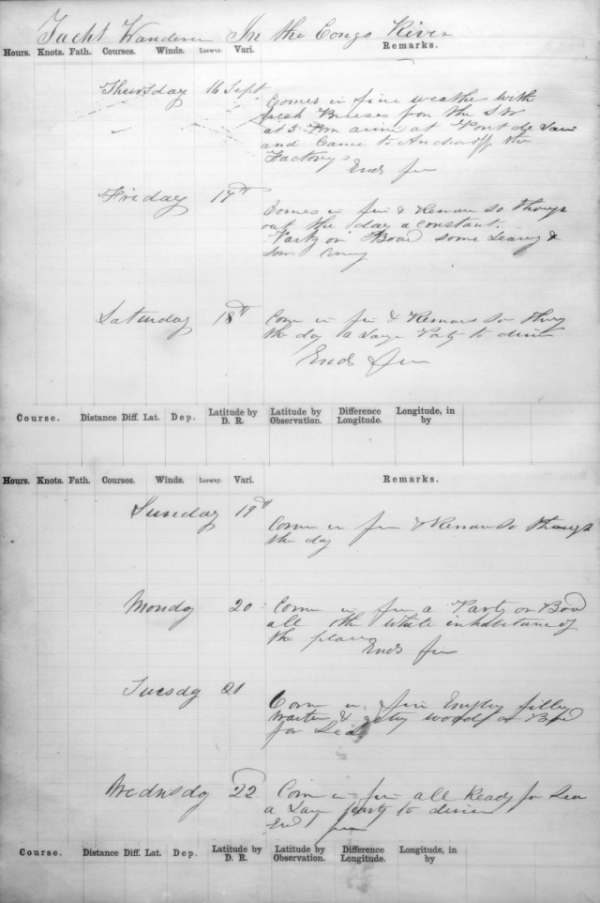 Yacht Wanderer In the Congo River
Hours. Knots. Fath. Courses. Winds. Leeway. Vari. Remarks.
Thursday 16 Sept Comes in fine weather with
fresh Breeses from the SW
at 5 Pm arive at Pont de
and Came to Anchor off the
Factory
Ends fin
Friday 17th Comes in fin & Remans so through
out the day a constant
Party on Board some Leaving &
som Coming
Saturday 18th Come in fin & Remans so throu
the day a Large Party to diner
Ends fin
Course. Distance Diff. Lat. Dep. Latitude by D. R. Latitude by Observation. Difference Longitude. Longitude, in by
Hours. Knots. Fath. Courses. Winds. Leeway. Vari. Remarks.
Sunday 19th Come in fin & Reman so through
the day
Monday 20 Come in fin a Party on Bord
all the white inhabitans of
the place
Ends fin
Tuesdy 21 Come in fin filling
water & geting wood on Bord
for Sea
Wednesdy 22 Come in fin all Ready for Sea
a Large party to diner
End fin
Course. Distance Diff. Lat. Dep. Latitude by D. R. Latitude by Observation. Difference Longitude. Longitude, in by